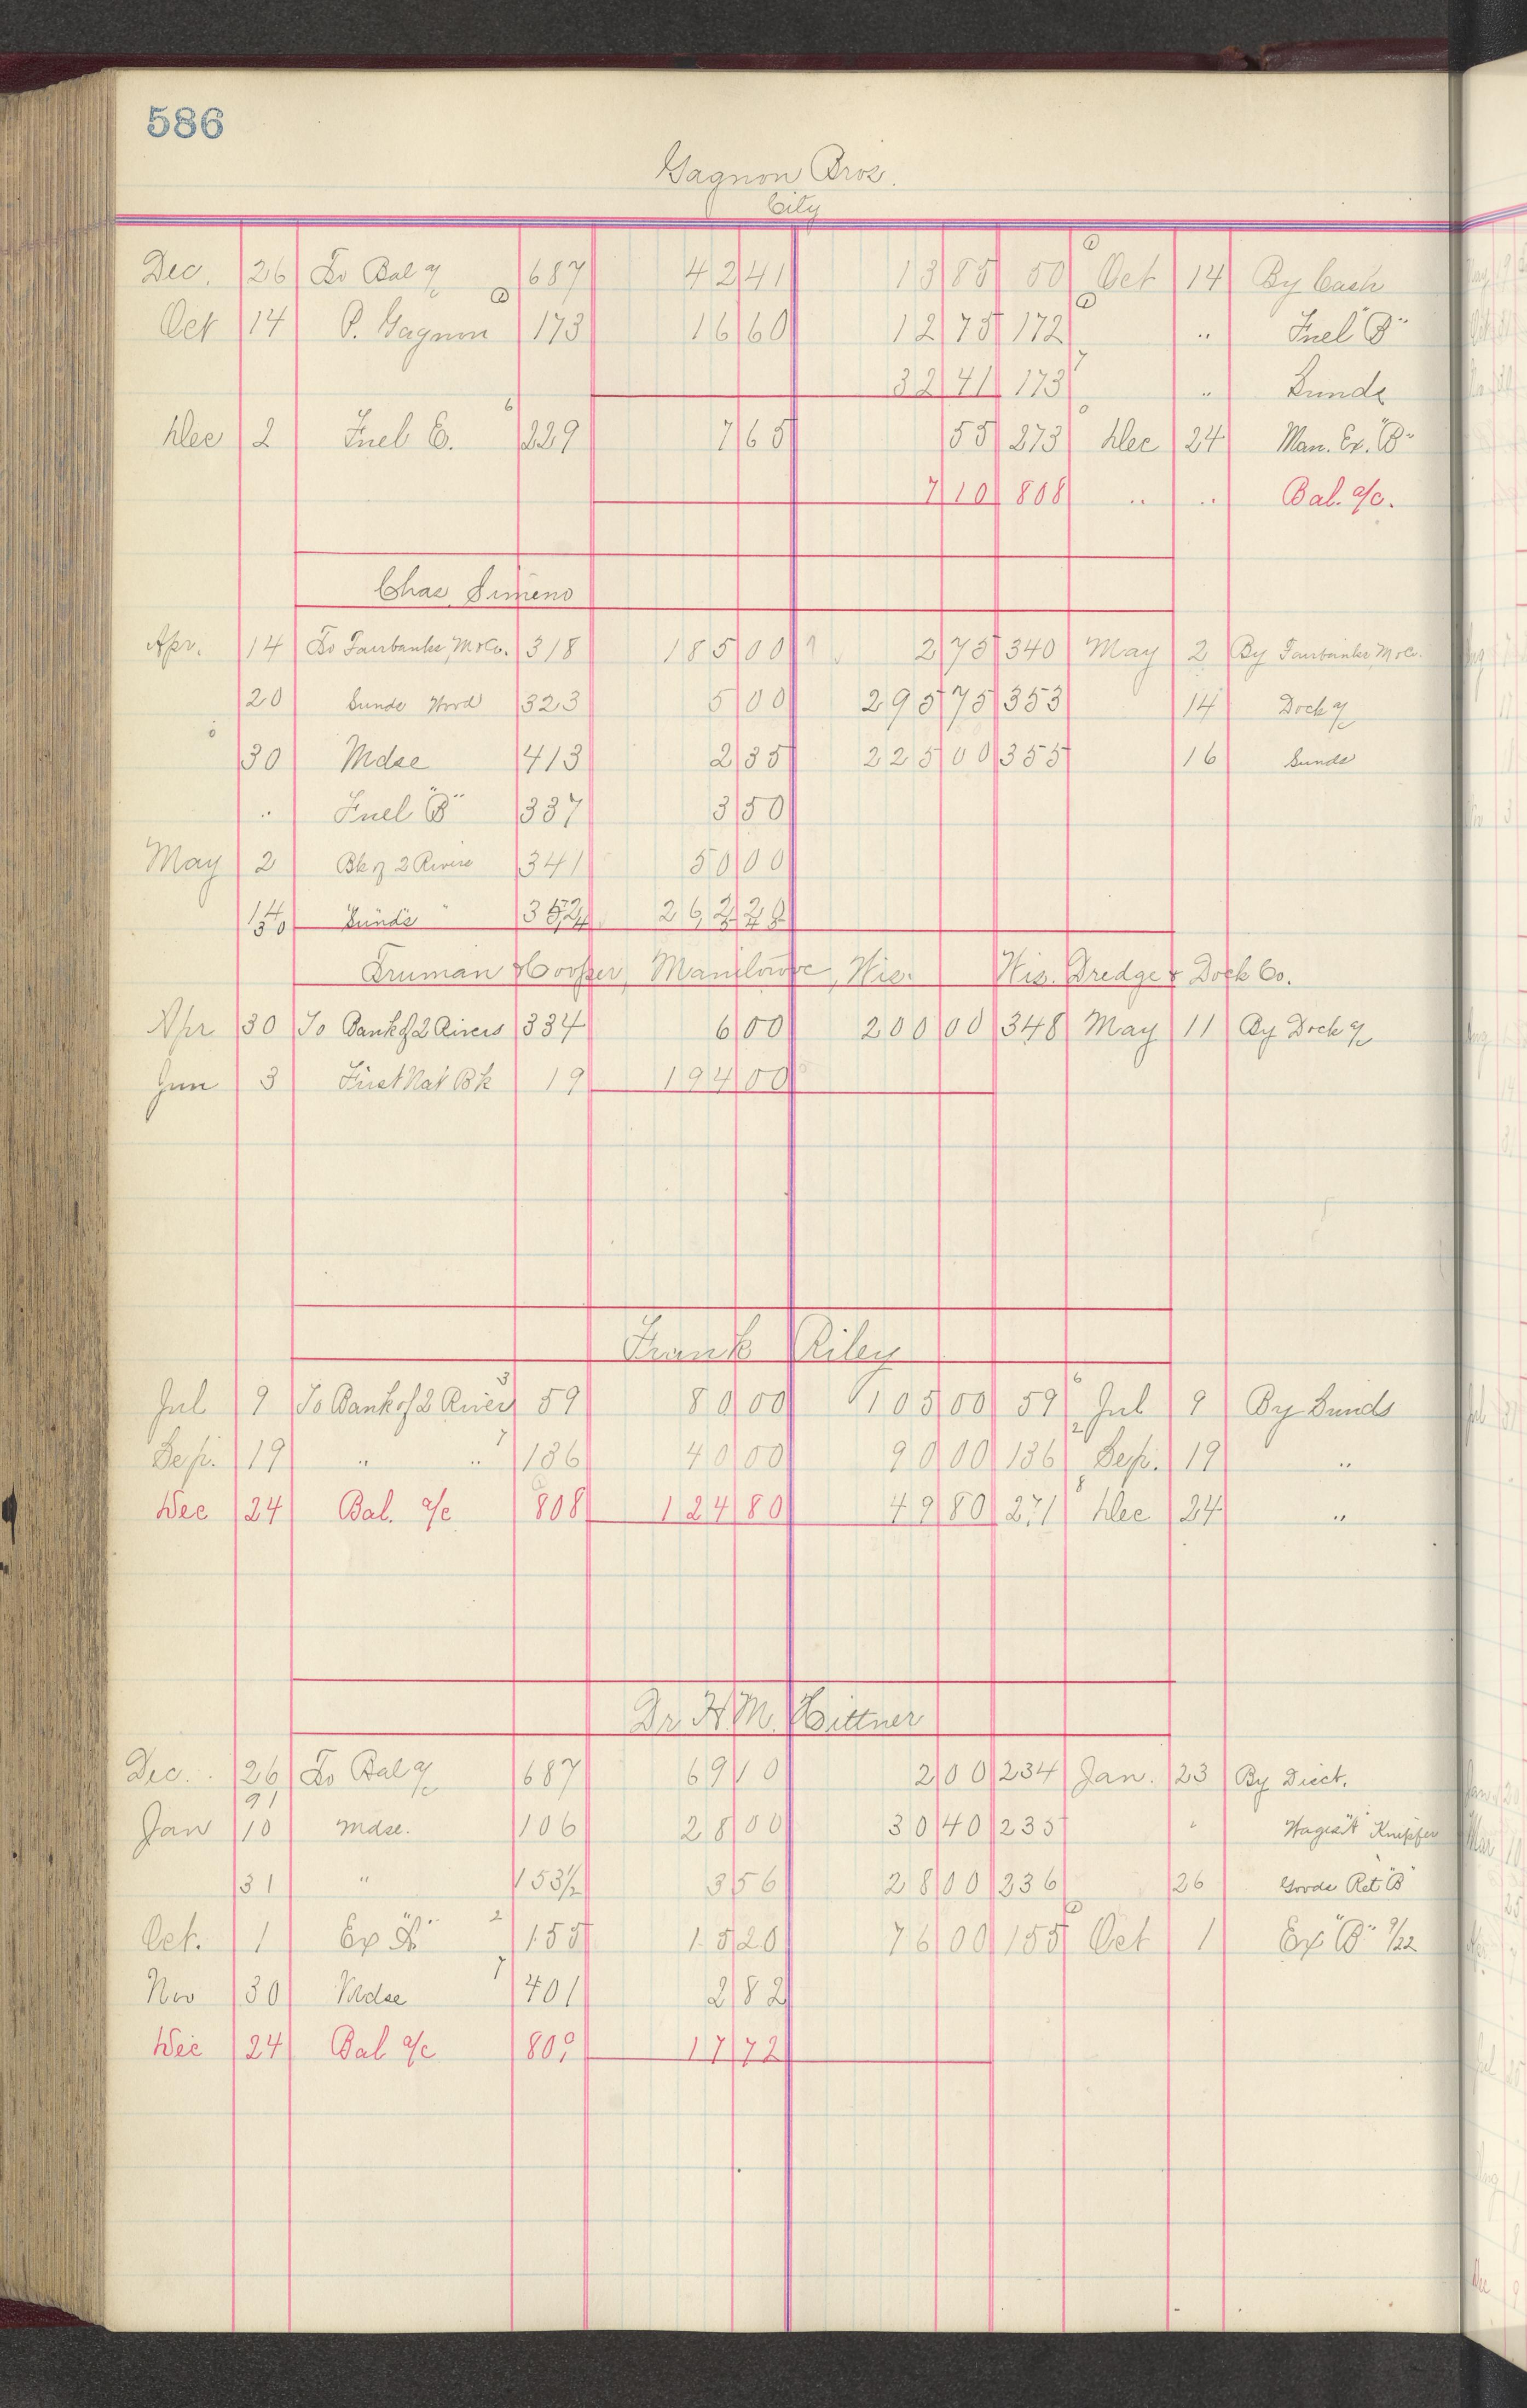 586
Gagnon Bros.
City
Dec. 26 To Bal a/c 687 42 41 13 85 50 Oct 14 By Cash
Oct 14 P. Gagnon 173 16 60 12 75 172 " Fuel "B"
32 41 173 " Sunds
Dec 2 Fuel E. 229 7 65 55 273 Dec 24 Man. Ex. "B"
7 10 808 " " Bal. a/c.
Chas. Simeno
Apr. 14 To Fairbanks, M & Co. 318 185 00 2 75 340 May 2 By Fairbanks M & Co.
20 Sunds Wood 323 5 00 295 75 353 14 Dock a/c
30 Mdse 413 2 35 225 00 355 16 Sunds
" Fuel "B" 337 3 50
May 2 Bk of 2 Rivers 341 50 00
14 Sunds
Truman & Cooper, Manitowoc, Wis. Wis. Dredge & Dock Co.
Apr 30 To Bank of 2 Rivers 334 6 00 200 00 348 May 11 By Dock a/c
Jun 3 First Nat Bk 19 194 00
Frank Riley
Jul 9 To Bank of 2 Rivers 59 80 00 105 00 59 Jul 9 By Sunds
Sep. 19 " " 136 40 00 90 00 136 Sep. 19 "
Dec 24 Bal. a/c 808 124 80 49 80 271 Dec 24 "
Dr. H. M. Hittner
Dec. 26 To Bal a/c 687 69 10 2 00 234 Jan. 23 By Disct.
91
Jan 10 Mdse. 106 28 00 30 40 235 " Wages "A" Knipfer
31 " 153½ 3 56 28 00 236 26 Goods Ret "B"
Oct. 1 Ex "A" 155 15 20 76 00 155 Oct 1 Ex "B" 9/22
Nov 30 Mdse 401 2 82
Dec 24 Bal a/c 17 72